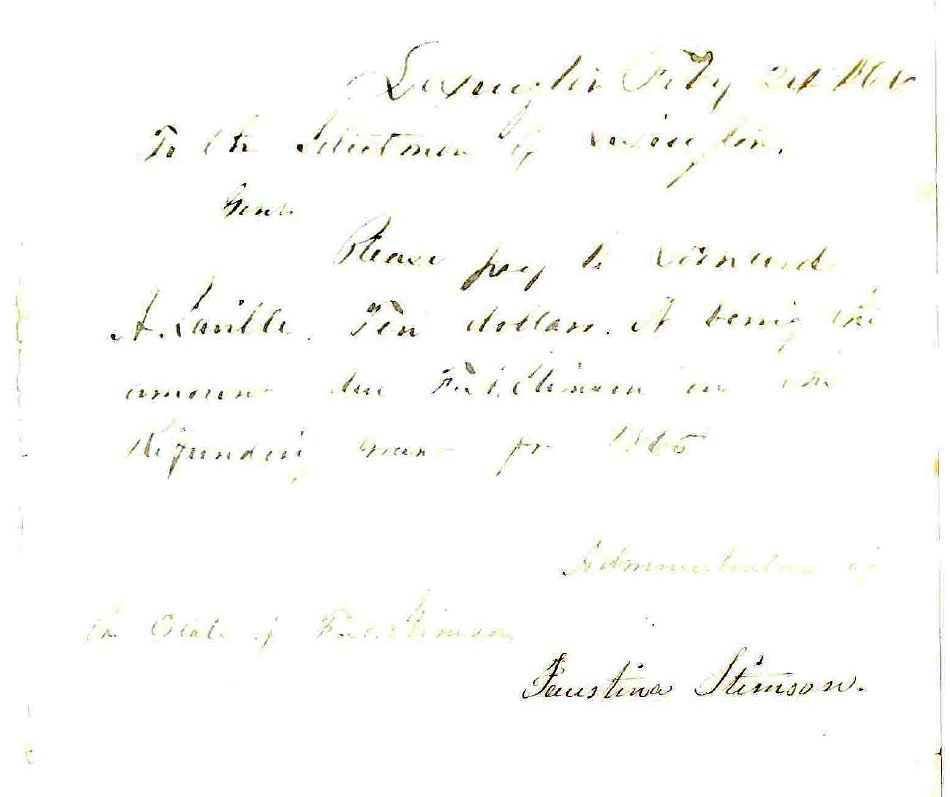 Lexington Feby 24 1866
To the Selectmen of Lexington.
Gent.
Please pay to Leonard
A. Saville. Ten dollars. It being the
amount due Fred. Stimson on the
Refunding money for 1865
Administratrix of
the Estate of Fred. Stimson
Faustina Stimson.